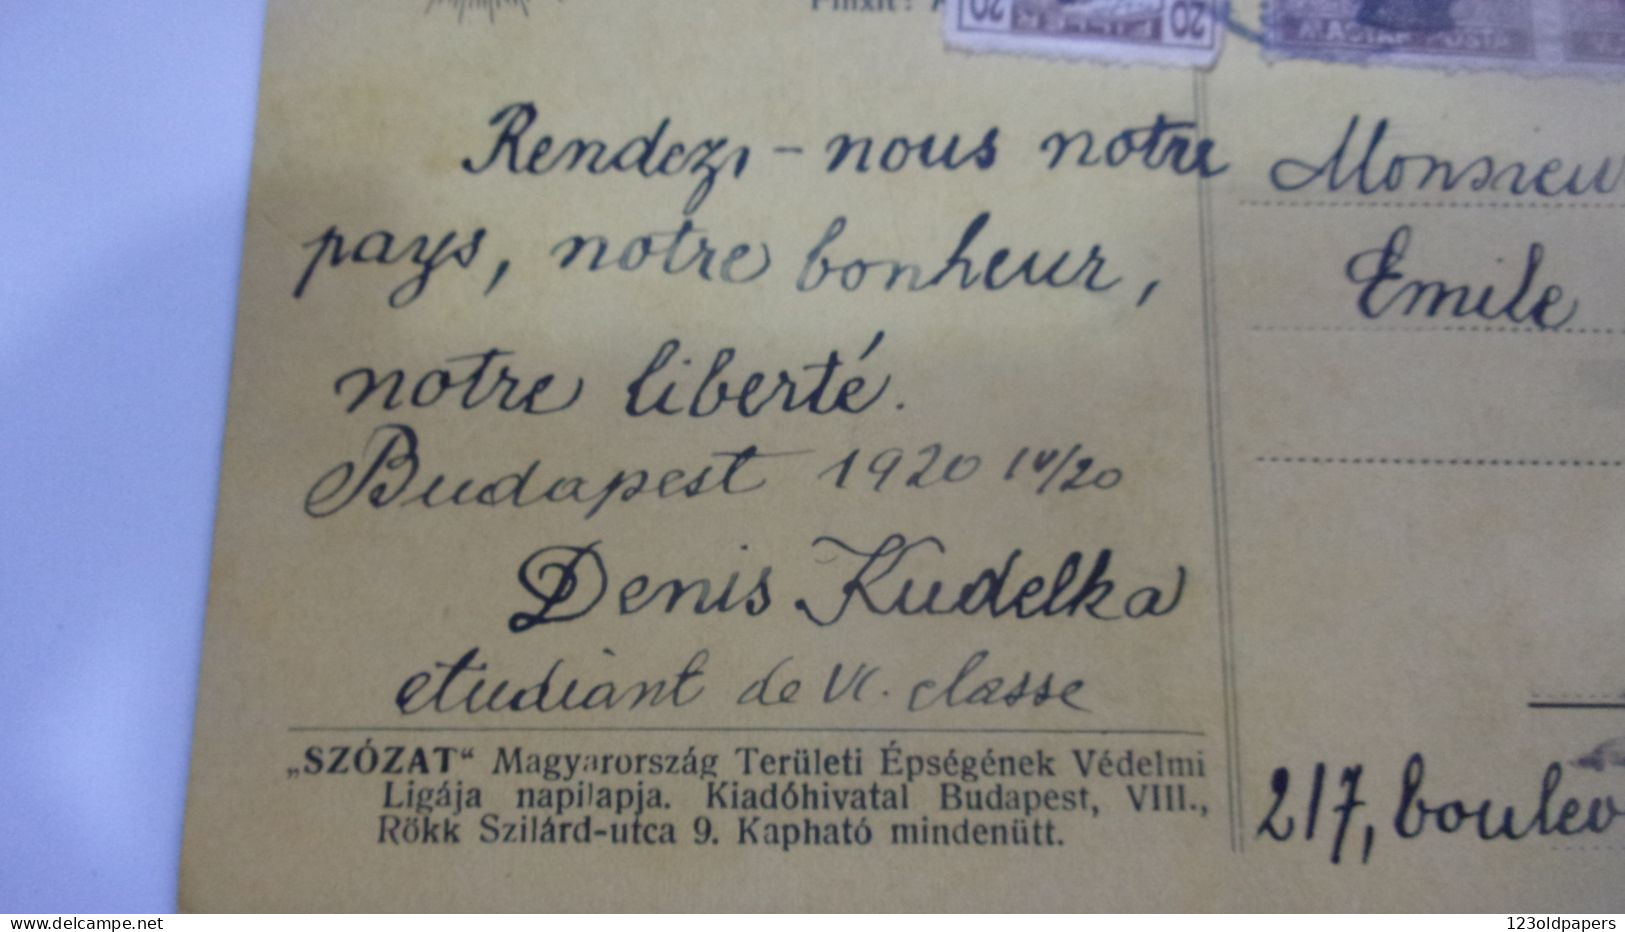 Pinxit:
20 20
MAGYAR POSTA
Rendez-nous notre
pays, notre bonheur,
notre liberté.
Budapest 1920 IV/20
Denis Kudelka
etudiant de VI. classe
„SZÓZAT“ Magyarország Területi Épségének Védelmi
Ligája napilapja. Kiadóhivatal Budapest, VIII.,
Rökk Szilárd-utca 9. Kapható mindenütt.
Monsieur
Emile
217, boulev
delcampe.net
123oldpapers